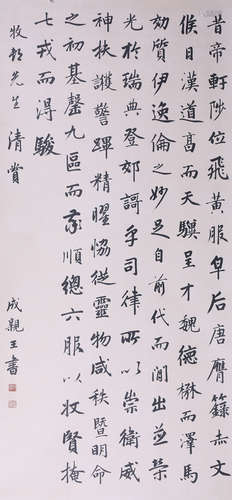 昔帝軒陟位飛黃服皁后唐膺籙赤文
候日漢道亨而天驥呈才魏德楙而澤馬
効質伊逸倫之妙足自前代而間出並榮
光於瑞典登郊謌乎司律所以崇衛威
神扶護警蹕精曜恊從靈物咸秩暨明命
之初基罄九區而率順總六服以收賢掩
七戎而得駿
牧邨先生清賞
成親王書